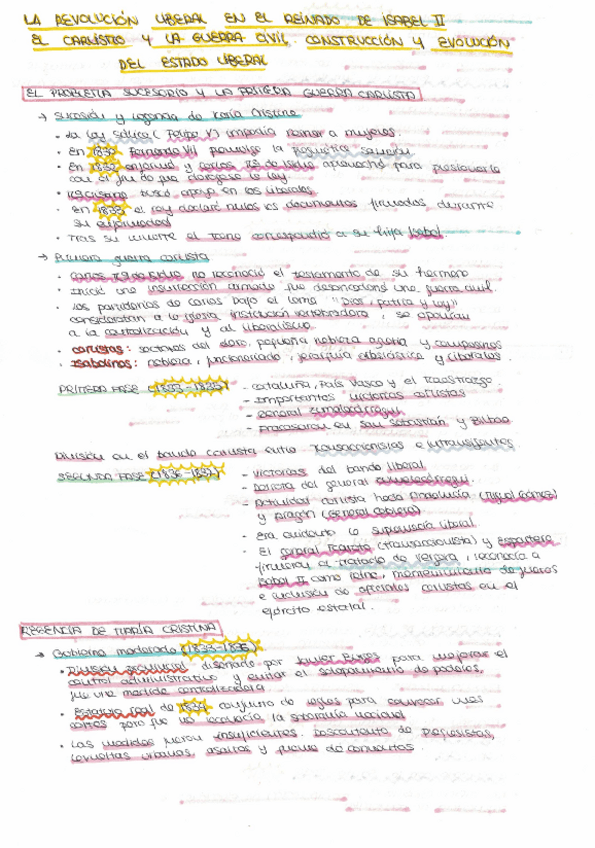 LA REVOLUCIÓN LIBERAL EN EL REINADO DE ISABEL II
EL CARLISMO Y LA GUERRA CIVIL. CONSTRUCCIÓN Y EVOLUCIÓN
DEL ESTADO LIBERAL
EL PROBLEMA SUCESORIO Y LA PRIMERA GUERRA CARLISTA
→ Sucesión y regencia de María Cristina
• La Ley Sálica (Felipe V) impedía reinar a mujeres.
• En 1830 Fernando VII promulgó la Pragmática Sanción
• En 1832 enfermó y Carlos Mª de Isidro aprovechó para presionarle
con el fin de que derogase la ley
• Mª Cristina buscó apoyo en los liberales
• En 1833 el rey declaró nulos los documentos firmados durante
su enfermedad
• Tras su muerte el trono correspondió a su hija Isabel
→ Primera guerra carlista
• Carlos Mª de Isidro no reconoció el testamento de su hermano
• Inició una insurrección armada que desencadenó una guerra civil.
• Los partidarios de Carlos bajo el lema "Dios, patria y ley"
consideraban a la iglesia institución vertebradora, se oponían
a la centralización y al liberalismo.
• Carlistas: sectores del clero, pequeña nobleza agraria y campesinos
• Isabelinos: nobleza, funcionariado, jerarquía eclesiástica y liberales.
PRIMERA FASE (1833-1835)
- Cataluña, País Vasco y el Maestrazgo.
- Importantes victorias carlistas
- General Zumalacárregui
- Fracasaron en San Sebastián y Bilbao
División en el bando carlista entre transaccionistas e intransigentes
SEGUNDA FASE (1836-1837)
- Victorias del bando liberal
- del general Zumalacárregui.
- Actividad carlista hacia Andalucía (Miguel Gómez)
y Aragón (General Cabrera)
- Era evidente la supremacía liberal.
- El general Maroto (transaccionista) y Espartero
firmaron el tratado de Vergara, reconocía a
Isabel II como reina, mantenimiento de fueros
e inclusión de oficiales carlistas en el
ejército estatal.
REGENCIA DE MARÍA CRISTINA
→ Gobierno moderado (1833-1836)
• División provincial diseñada por Javier Burgos para mejorar el
control administrativo y evitar el solapamiento de poderes,
fue una medida centralizadora
• Estatuto real de 1834 conjunto de reglas para convocar unas
cortes pero que no reconocía la soberanía nacional
• Las medidas fueron insuficientes. Descontento de progresistas,
revueltas urbanas, asaltos y quema de conventos.